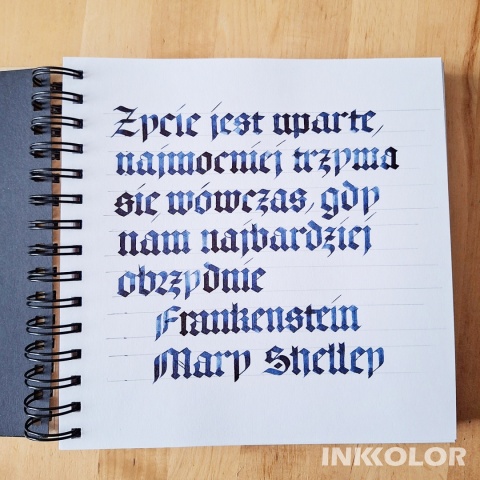 Życie jest uparte,
najmocniej trzyma
się wówczas, gdy
nam najbardziej
obrzydnie
Frankenstein
Mary Shelley
INKKOLOR